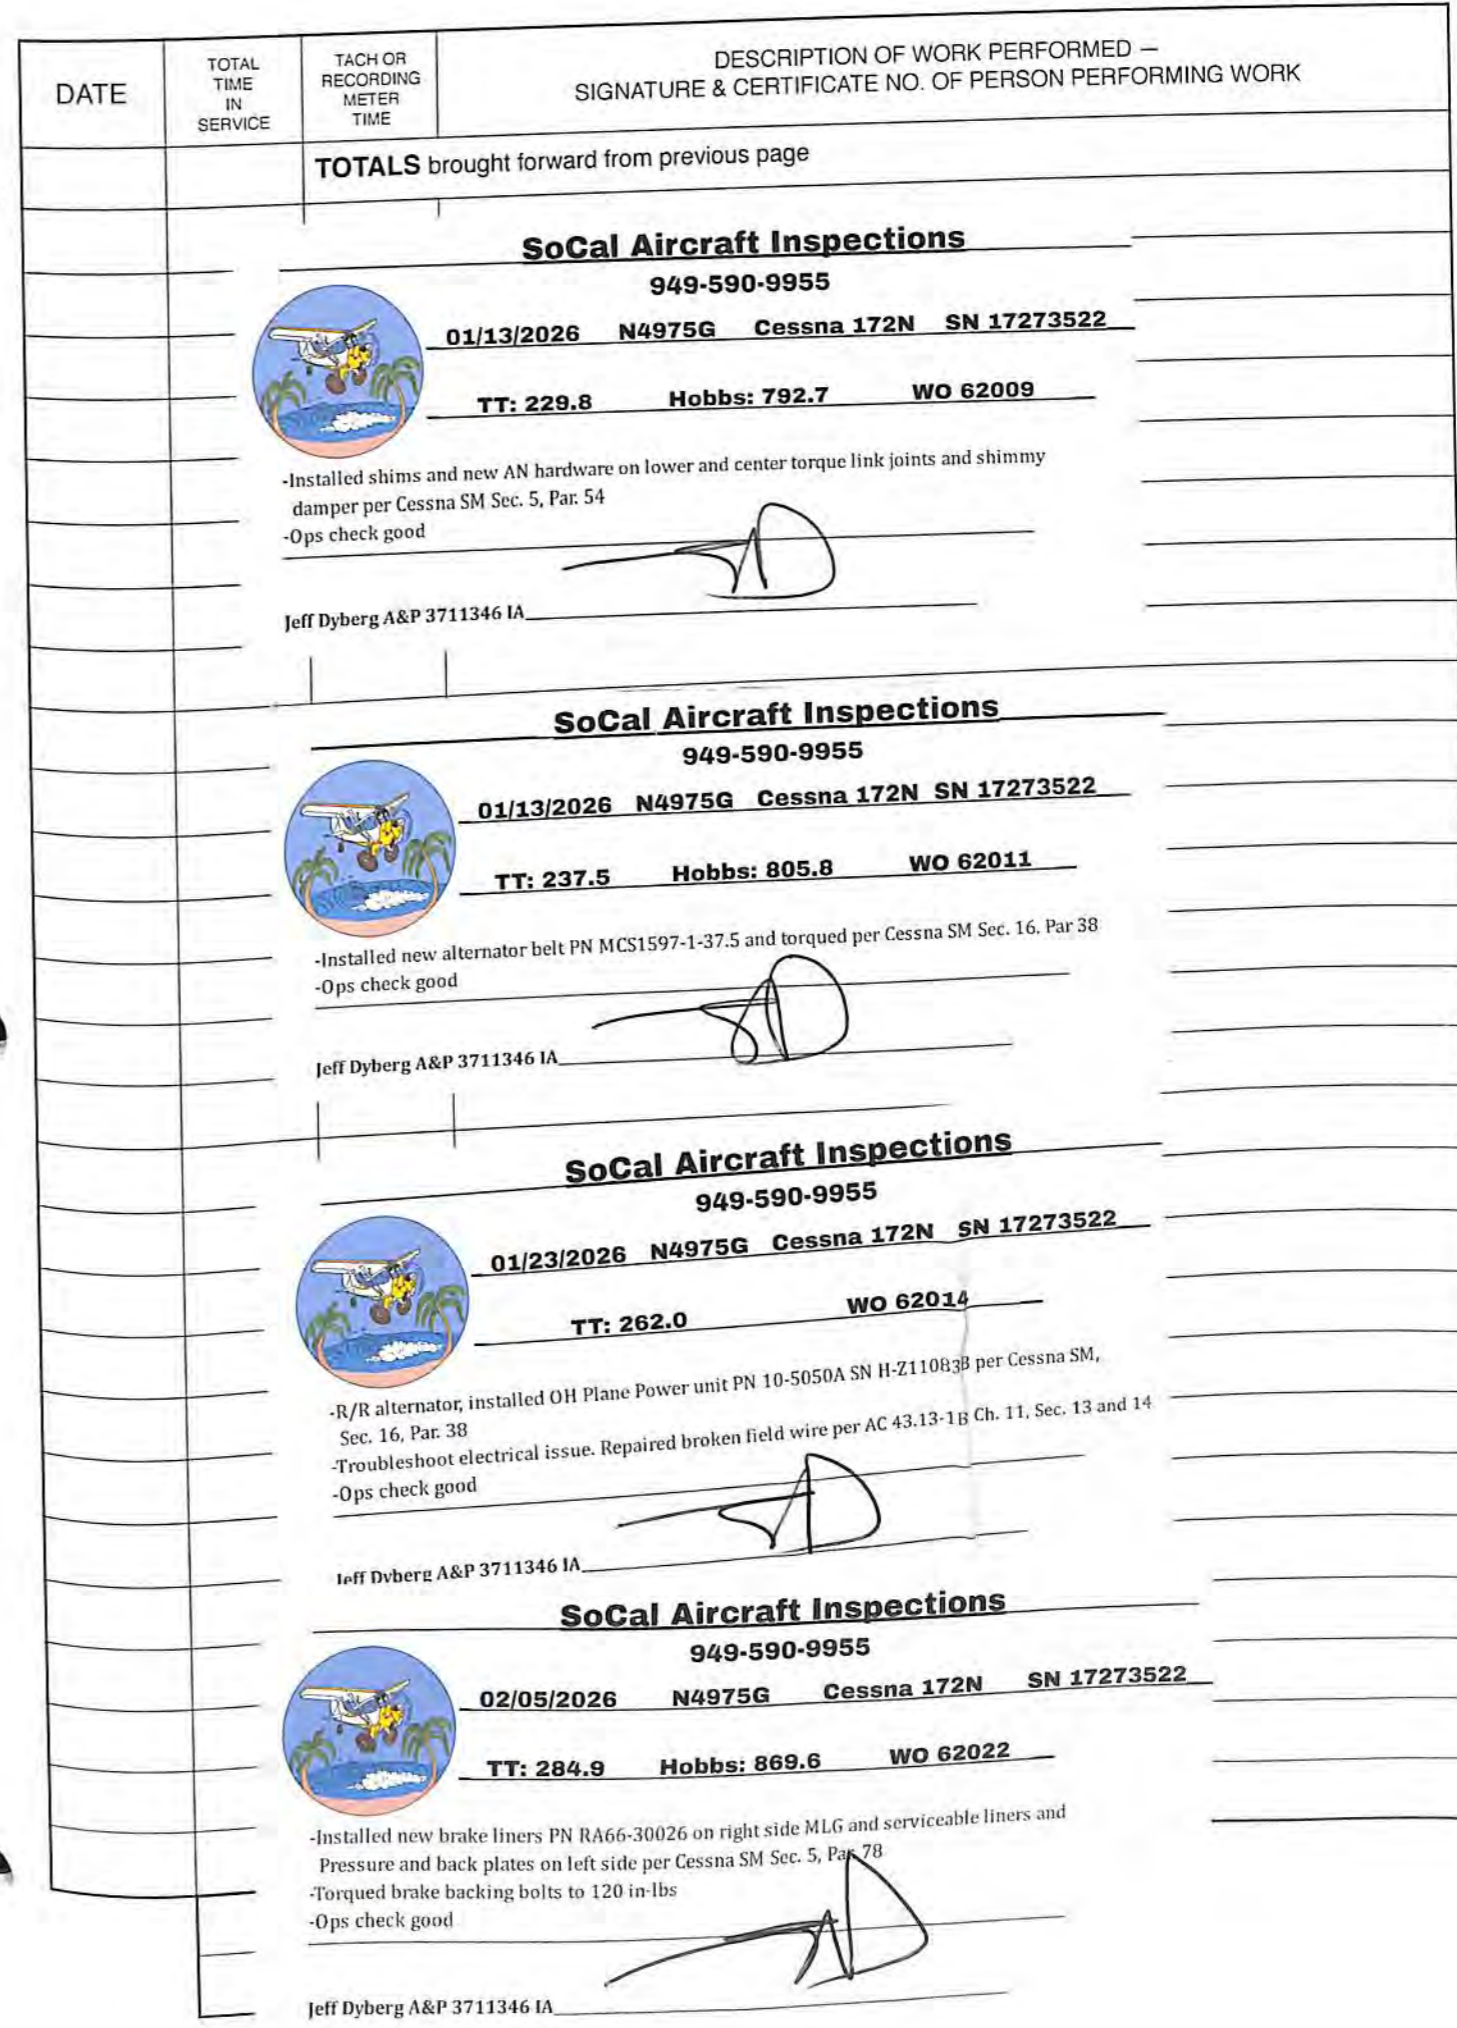 DATE
TOTAL
TIME
IN
SERVICE
TACH OR
RECORDING
METER
TIME
DESCRIPTION OF WORK PERFORMED —
SIGNATURE & CERTIFICATE NO. OF PERSON PERFORMING WORK
TOTALS brought forward from previous page
SoCal Aircraft Inspections
949-590-9955
01/13/2026 N4975G Cessna 172N SN 17273522
TT: 229.8 Hobbs: 792.7 WO 62009
-Installed shims and new AN hardware on lower and center torque link joints and shimmy
damper per Cessna SM Sec. 5, Par. 54
-Ops check good
Jeff Dyberg A&P 3711346 IA
SoCal Aircraft Inspections
949-590-9955
01/13/2026 N4975G Cessna 172N SN 17273522
TT: 237.5 Hobbs: 805.8 WO 62011
-Installed new alternator belt PN MCS1597-1-37.5 and torqued per Cessna SM Sec. 16. Par 38
-Ops check good
Jeff Dyberg A&P 3711346 IA
SoCal Aircraft Inspections
949-590-9955
01/23/2026 N4975G Cessna 172N SN 17273522
TT: 262.0 WO 62014
-R/R alternator, installed OH Plane Power unit PN 10-5050A SN H-Z11083B per Cessna SM,
Sec. 16, Par. 38
-Troubleshoot electrical issue. Repaired broken field wire per AC 43.13-1B Ch. 11, Sec. 13 and 14
-Ops check good
Jeff Dyberg A&P 3711346 IA
SoCal Aircraft Inspections
949-590-9955
02/05/2026 N4975G Cessna 172N SN 17273522
TT: 284.9 Hobbs: 869.6 WO 62022
-Installed new brake liners PN RA66-30026 on right side MLG and serviceable liners and
Pressure and back plates on left side per Cessna SM Sec. 5, Par. 78
-Torqued brake backing bolts to 120 in-lbs
-Ops check good
Jeff Dyberg A&P 3711346 IA